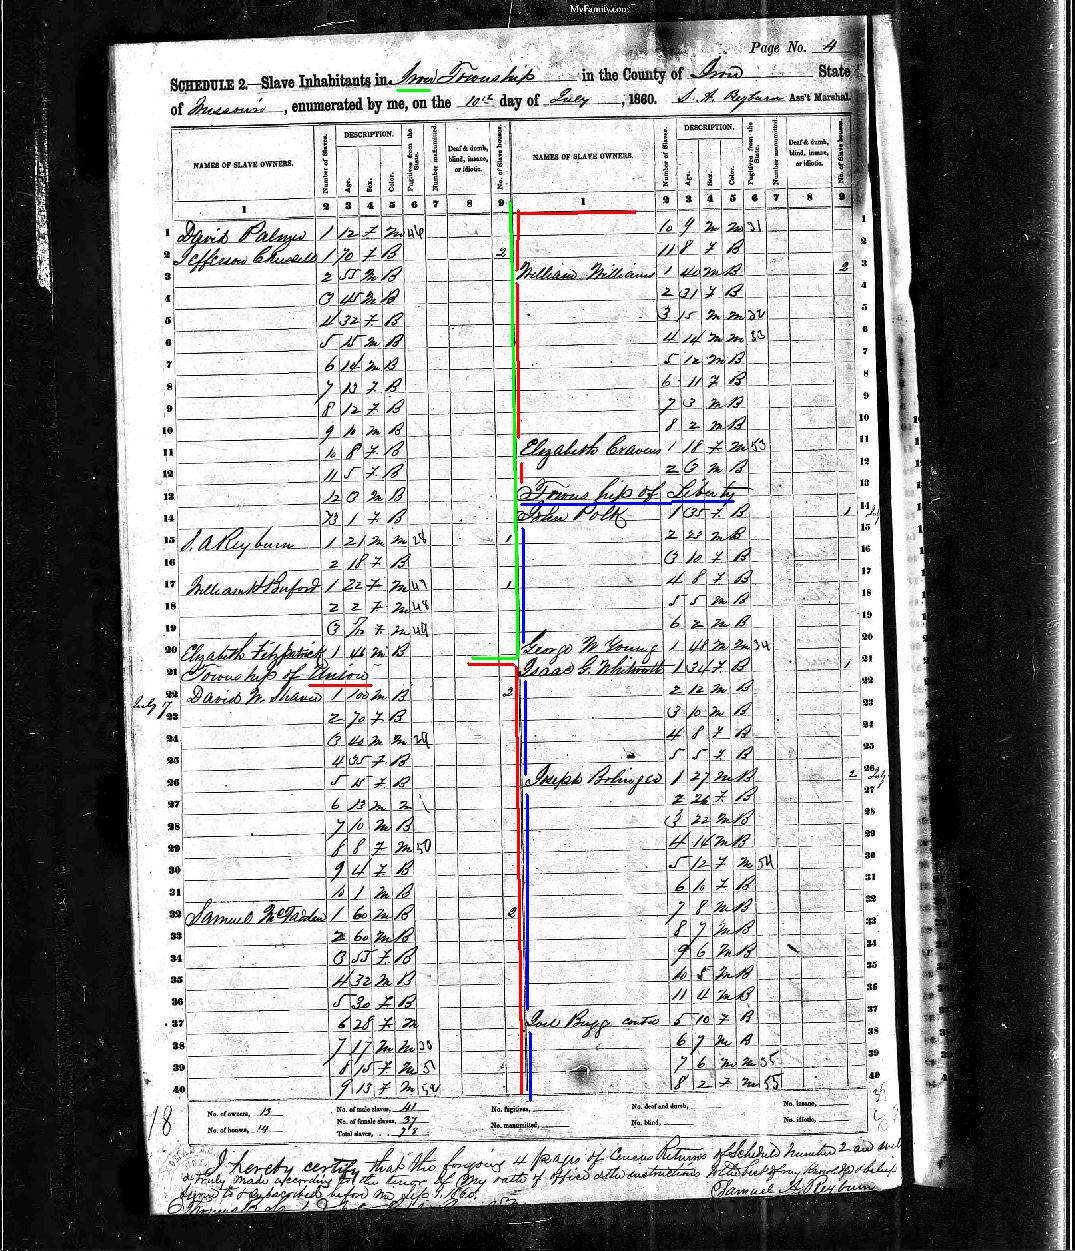 MyFamily.com
Page No. 4
SCHEDULE 2.—Slave Inhabitants in Iron Township in the County of Iron State
of Missouri, enumerated by me, on the 10th day of July, 1860. S. A. Reyburn Ass't Marshal.
NAMES OF SLAVE OWNERS. Number of Slaves. DESCRIPTION. Age. Sex. Color. Fugitives from the State. Number manumitted. Deaf & dumb, blind, insane, or idiotic. No. of Slave houses.
1 2 3 4 5 6 7 8 9
1 David Palmer 1 12 F M 46
2 Jefferson 1 70 F B 2
3 2 55 M B
4 3 45 M B
5 4 32 F B
6 5 15 M B
7 6 14 M B
8 7 13 F B
9 8 12 F B
10 9 10 M B
11 10 8 F B
12 11 5 F B
13 12 3 M B
14 13 1 F B
15 S. A Reyburn 1 21 M M 28 1
16 2 18 F B
17 William H Buford 1 22 F M 47 1
18 2 2 F M 48
19 3 F M 49
20 Elizabeth Fitzpatrick 1 46 M B
21 Township of Union
22 David W. 1 100 M B 2
July 17
23 2 70 F B
24 3 40 M M 29
25 4 35 F B
26 5 15 F B
27 6 13 M
28 7 10 M B
29 8 8 F M 50
30 9 4 F B
31 10 1 M B
32 Samuel McFadden 1 60 M B 2
33 2 60 M B
34 3 55 F B
35 4 32 M B
36 5 30 F B
37 6 28 F M
38 7 17 M M 30
39 8 15 F M 51
40 9 13 F M 52
NAMES OF SLAVE OWNERS. Number of Slaves. DESCRIPTION. Age. Sex. Color. Fugitives from the State. Number manumitted. Deaf & dumb, blind, insane, or idiotic. No. of Slave houses.
1 2 3 4 5 6 7 8 9
10 9 M M 31 1
11 8 F B 2
William Williams 1 40 M B 2 3
2 31 F B 4
3 15 M M 32 5
4 14 M M 33 6
5 12 M B 7
6 11 F B 8
7 3 M B 9
8 2 M B 10
Elizabeth Cravens 1 18 F M 53 11
2 3 M B 12
Township of Liberty 13
John Polk 1 35 F B 1 14
2 23 M B 15
3 10 F B 16
4 8 F B 17
5 5 M B 18
6 2 M B 19
George W Young 1 48 M M 34 20
Isaac G. Whitworth 1 34 F B 1 21
2 12 M B 22
3 10 M B 23
4 8 F B 24
5 5 F B 25
Joseph Bolinger 1 27 M B 2 26 July
2 26 F B 27
3 22 M B 28
4 14 M B 29
5 12 F M 54 30
6 10 F B 31
7 8 M B 32
8 7 M B 33
9 6 M B 34
10 5 M B 35
11 4 M B 36
Joel Bugg contd 5 10 F B 37
6 7 M B 38
7 6 M M 35 39
8 2 F M 55 40
No. of owners, 13 No. of male slaves, 41 No. fugitives, No. deaf and dumb, No. insane,
No. of houses, 14 No. of female slaves, 37 No. manumitted, No. blind, No. idiotic,
Total slaves, 78
18
I hereby certify that the forgoing 4 pages of Census Returns of Schedule Number 2 are well
& truly made according to the tenor of my oath of office & the instructions to the best of my knowledge & belief
Sworn to & subscribed before me Sep 1. 1860. Samuel A. Reyburn